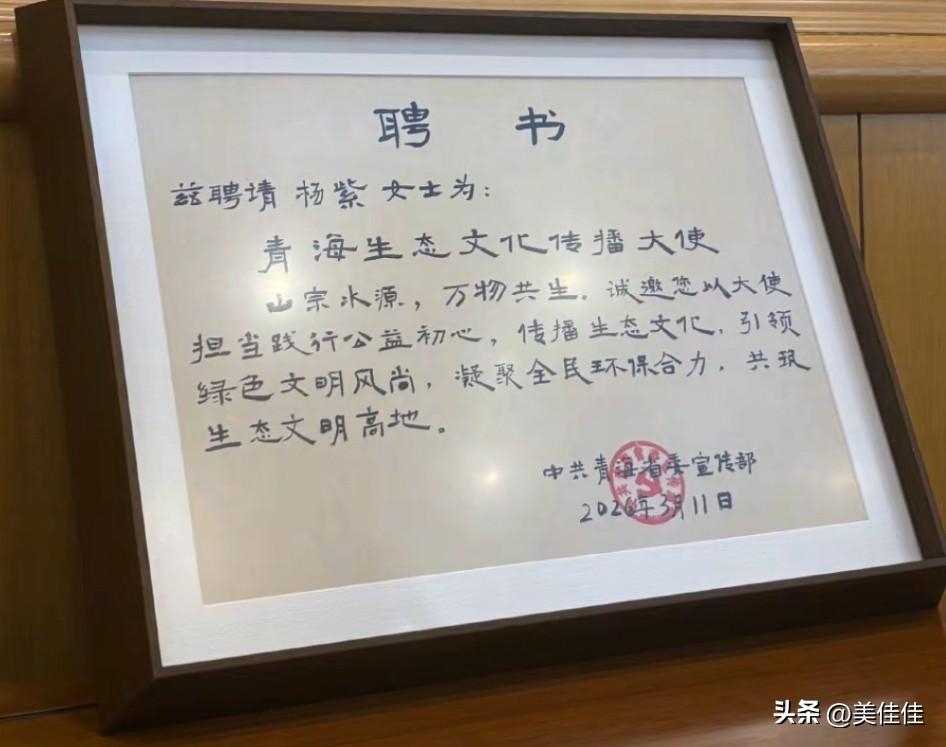 聘 书
兹聘请 杨紫 女士为：
青海生态文化传播大使
山宗水源，万物共生。诚邀您以大使
担当践行公益初心，传播生态文化，引领
绿色文明风尚，凝聚全民环保合力，共筑
生态文明高地。
中共青海省委宣传部
2026年3月11日
头条 @美佳佳